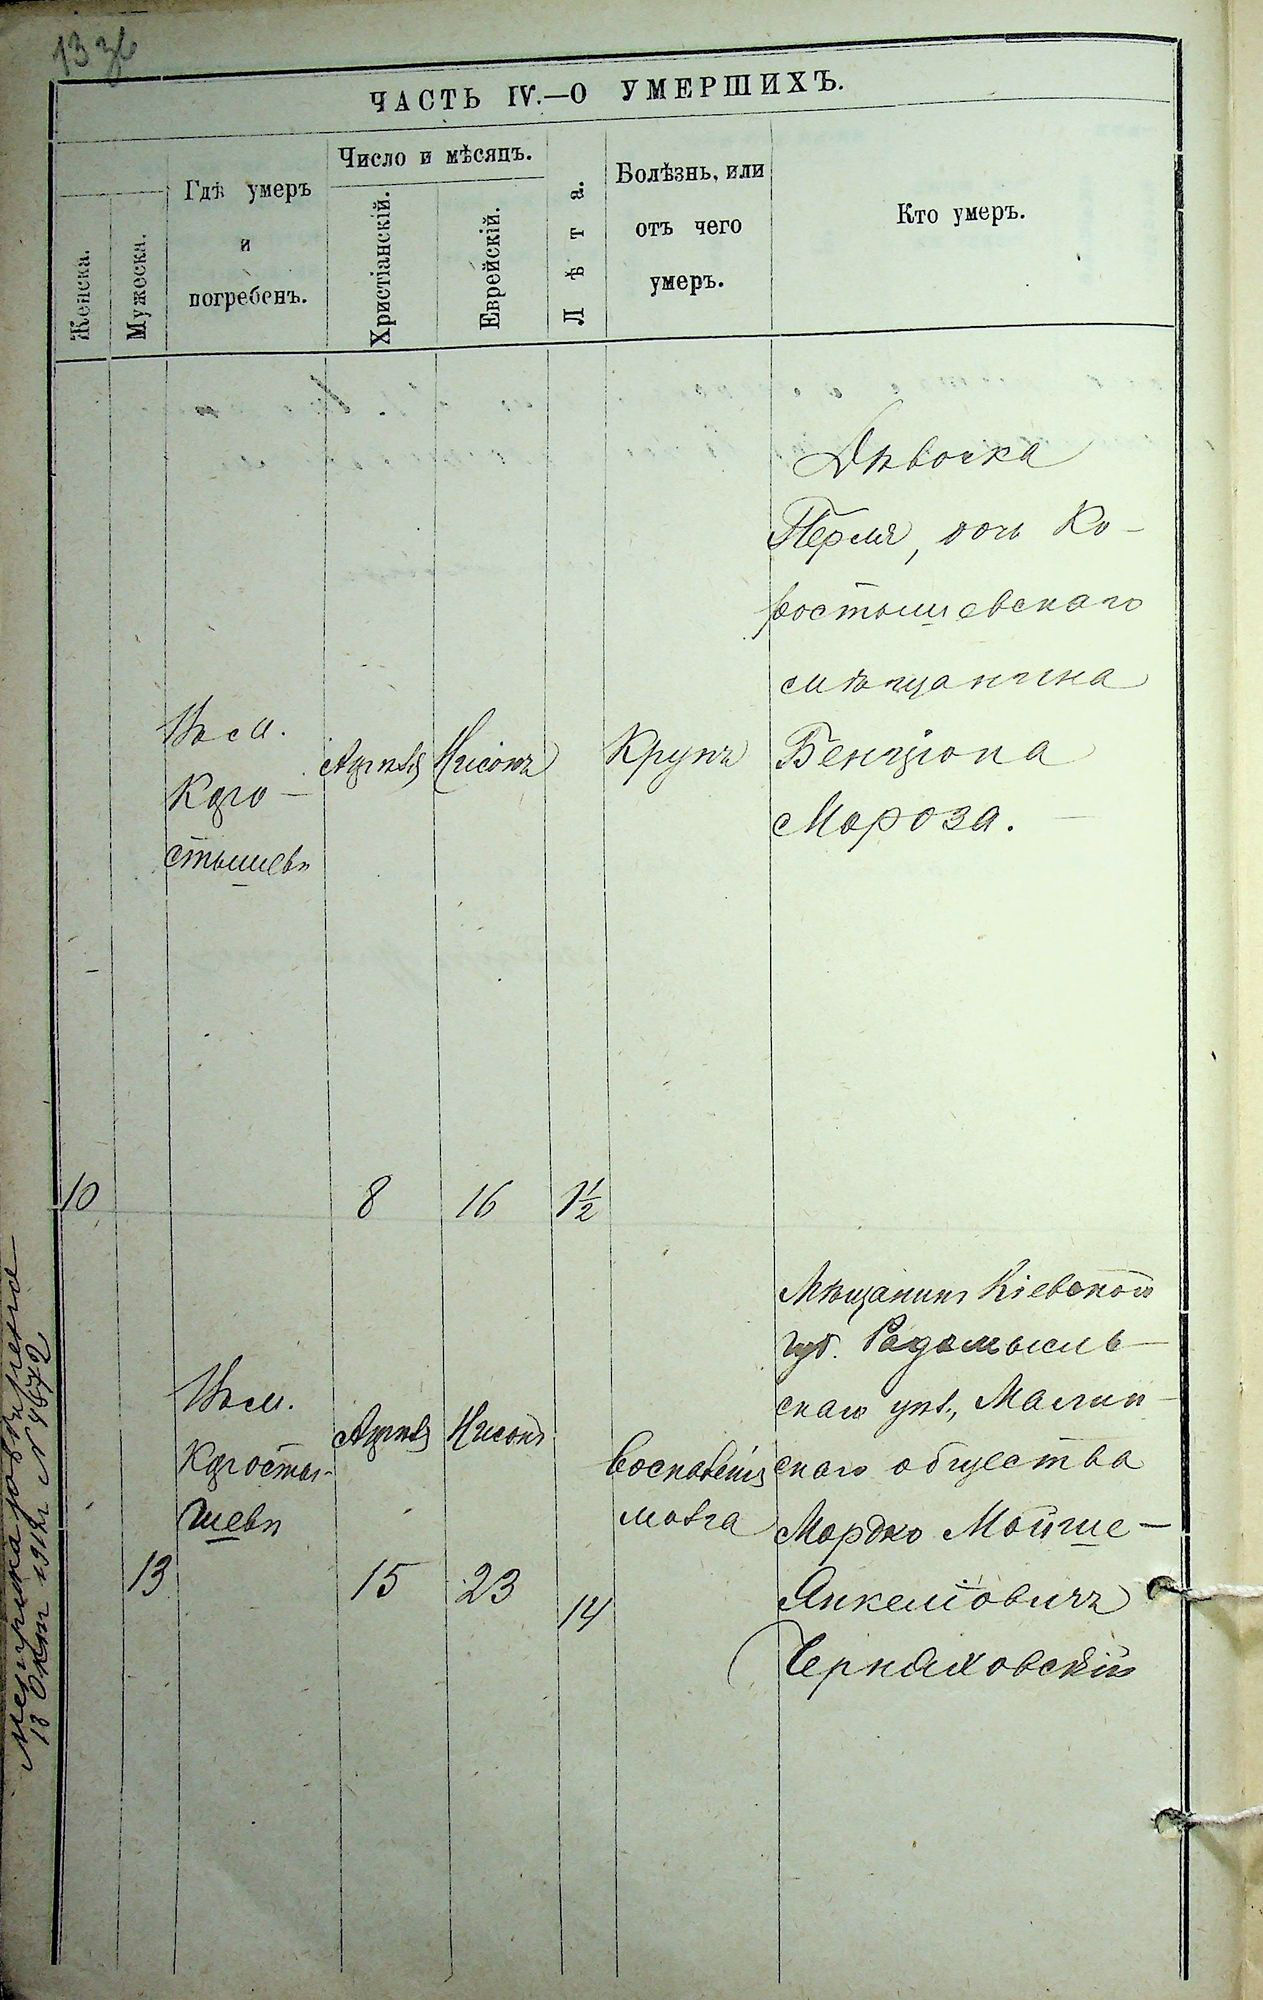 ЧАСТЬ IV.—О УМЕРШИХЪ.
Женска.
Мужеска.
Гдѣ умеръ
и
погребенъ.
Число и мѣсяцъ.
Христіанскій.
Еврейскій.
Лѣта.
Болѣзнь, или
отъ чего
умеръ.
Кто умеръ.
10
Въ м.
Коро-
стышевѣ
Апрѣля
8
Нисонъ
16
1½
Крупъ
Дѣвочка
Перля, дочь Ко-
ростышевскаго
мѣщанина
Бенціона
Мороза.
13
Въ м.
Коросты-
шевѣ
Апрѣля
15
Нисонъ
23
14
Воспаленія
мозга
Мѣщанинъ Кіевской
губ. Радомысль-
скаго уѣз., Малин-
скаго общества
Мордко Мойше-
Янкелiовичъ
Черняховскій
18 Окт 1912 г N 4672